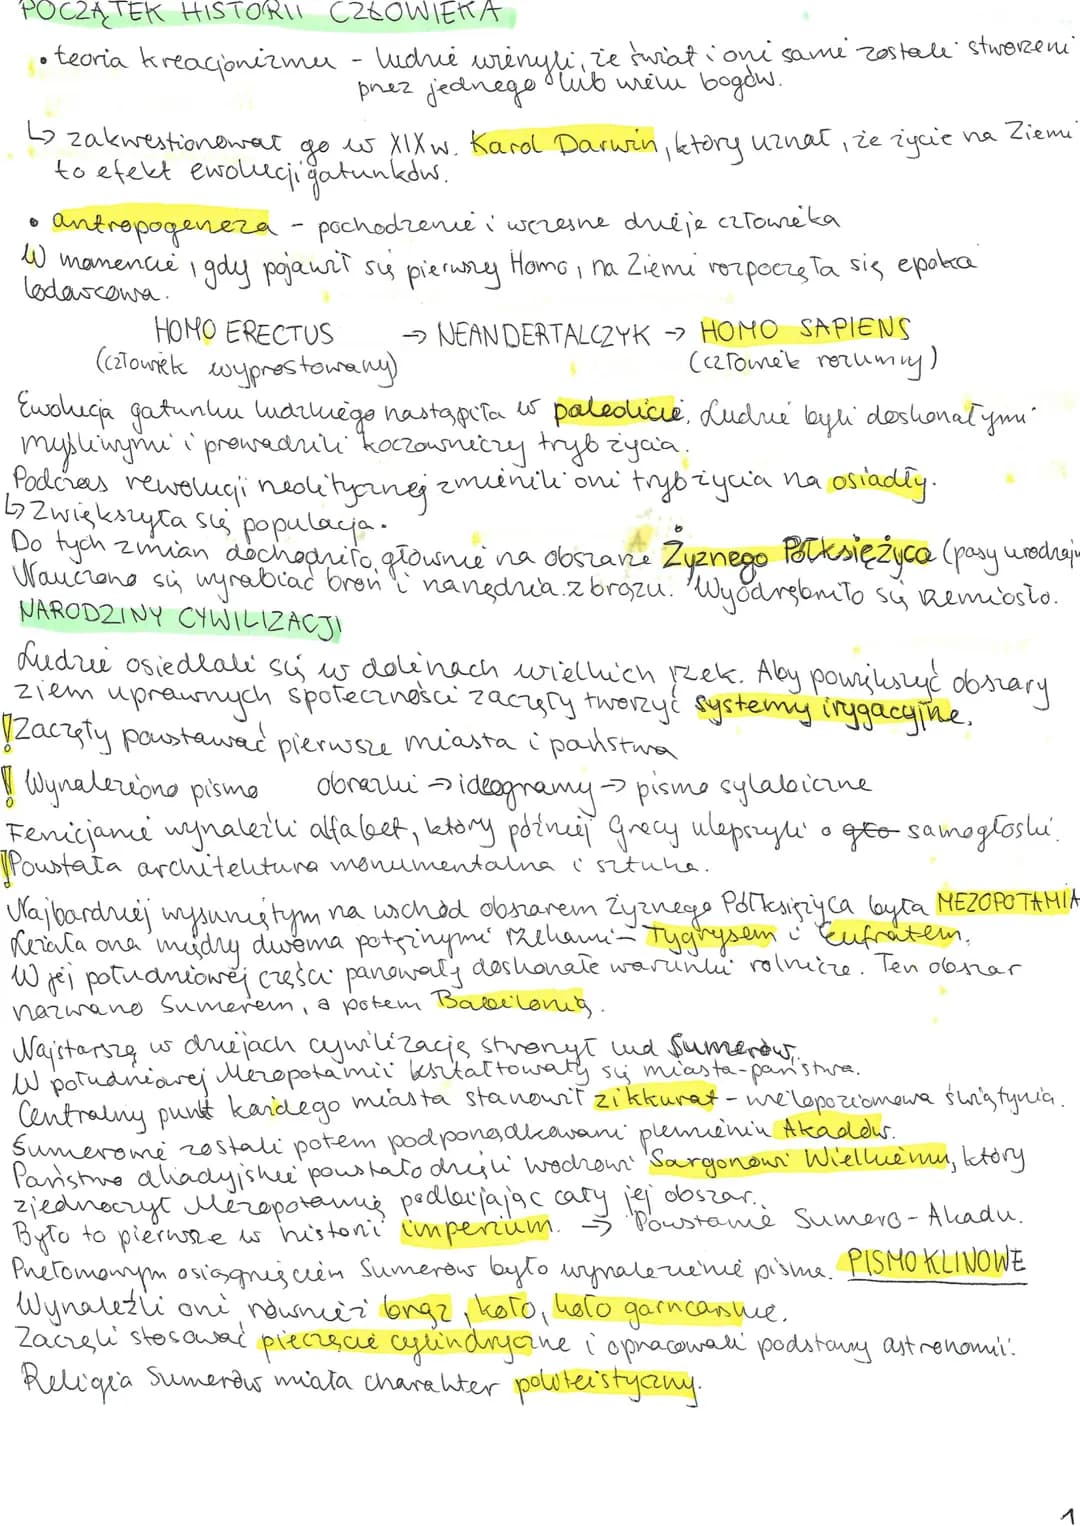 POCZĄTEK HISTORII CZŁOWIEKA
• teoria kreacjonizmu - ludzie wierzyli, że świat i oni sami zostali stworzeni
przez jednego lub wielu bogów.
↳ zakwestionował go w XIX w. Karol Darwin, który uznał, że życie na Ziemi
to efekt ewolucji gatunków.
• antropogeneza - pochodzenie i wczesne dzieje człowieka
W momencie, gdy pojawił się pierwszy Homo, na Ziemi rozpoczęła się epoka
lodowcowa.
HOMO ERECTUS → NEANDERTALCZYK → HOMO SAPIENS
(człowiek wyprostowany) (człowiek rozumny)
Ewolucja gatunku ludzkiego nastąpiła w paleolicie. Ludzie byli doskonałymi
myśliwymi i prowadzili koczowniczy tryb życia.
Podczas rewolucji neolitycznej zmienili oni tryb życia na osiadły.
↳ Zwiększyła się populacja.
Do tych zmian dochodziło głównie na obszarze Żyznego Półksiężyca (pasy urodzajn
Nauczono się wyrabiać broń i narzędzia z brązu. Wyodrębniło się rzemiosło.
NARODZINY CYWILIZACJI
Ludzie osiedlali się w dolinach wielkich rzek. Aby powiększyć obszary
ziem uprawnych społeczności zaczęły tworzyć systemy irygacyjne.
! Zaczęły powstawać pierwsze miasta i państwa
! Wynaleziono pismo obrazki → ideogramy → pismo sylabiczne
Fenicjanie wynaleźli alfabet, który później Grecy ulepszyli o gło samogłoski.
! Powstała architektura monumentalna i sztuka.
Najbardziej wysuniętym na wschód obszarem Żyznego Półksiężyca była MEZOPOTAMIA
Leżała ona między dwoma potężnymi rzekami - Tygrysem i Eufratem.
W jej południowej części panowały doskonałe warunki rolnicze. Ten obszar
nazwano Sumerem, a potem Babilonią.
Najstarszą w dziejach cywilizację stworzył lud Sumerów.
W południowej Mezopotamii kształtowały się miasta-państwa.
Centralny punkt każdego miasta stanowił zikkurat - wielopoziomowa świątynia.
Sumerowie zostali potem podporządkowani plemieniu Akadów.
Państwo akadyjskie powstało dzięki wodzowi Sargonowi Wielkiemu, który
zjednoczył Mezopotamię podbijając cały jej obszar.
Było to pierwsze w historii imperium. → Powstanie Sumero-Akadu.
Przełomowym osiągnięciem Sumerów było wynalezienie pisma. PISMO KLINOWE
Wynaleźli oni również brąz, koło, koło garncarskie.
Zaczęli stosować pieczęcie cylindryczne i opracowali podstawy astronomii.
Religia Sumerów miała charakter politeistyczny.
1